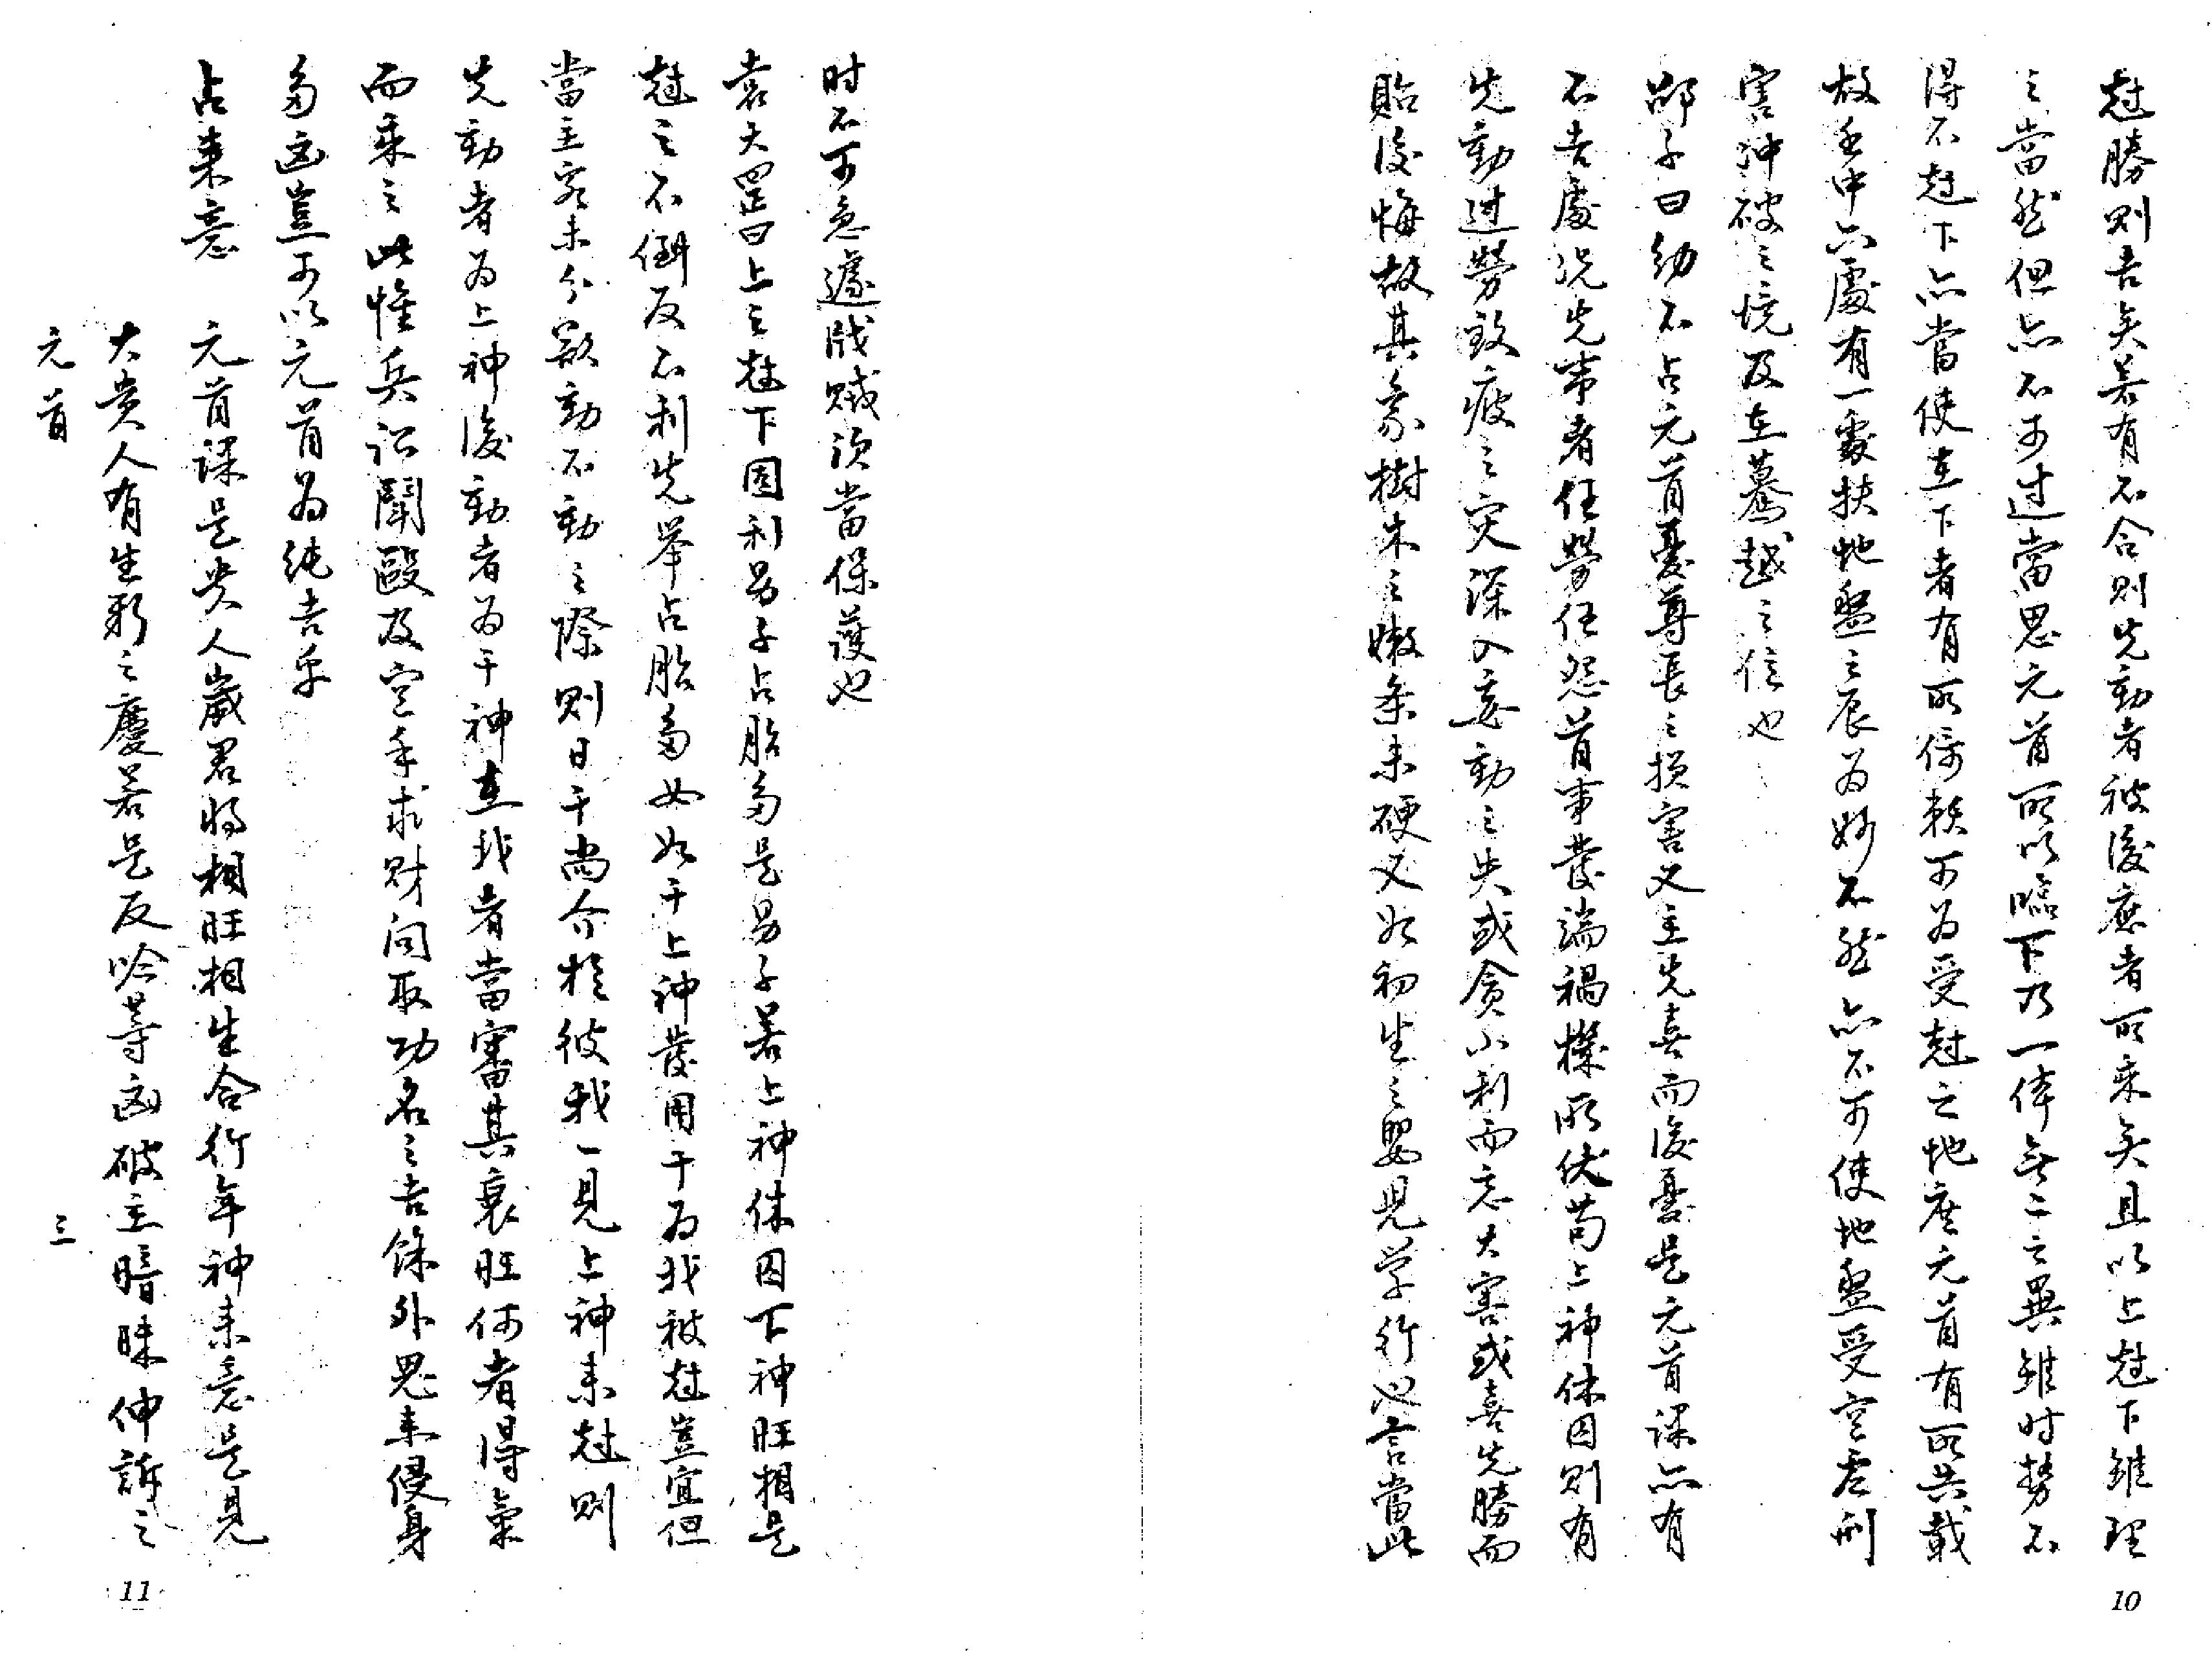 尅勝則吉矣若有不合則先動者被後應者所乘矣且以上尅下雖理
之當然但亦不可过當思元首所以臨下乃一体無二之異雖时势不
得不尅下亦當使在下者有所倚賴可为受尅之地庶元首有所共戴
故壬中六處有一處扶地盤之辰为妙不然亦不可使地盤受空虛刑
害冲破之境反在驀越之信也
邵子曰幼不占元首憂尊長之损害又主先喜而後憂是元首課亦有
不吉處况先事者任勞任怨首事發端禍機所伏苟上神休囚則有
先動过勞致疲之灾深入妄動之失或貪小利而忘大害或喜先勝而
貽後悔故其象樹木之嫩条未硬又如初生之嬰児学行也言當此
时不可急遽戕贼须當保護也
袁天罡曰上之尅下固利男子占胎多是男子若上神休囚下神旺相是
尅之不倒反不利先举占胎多女如干上神發用干为我被尅豈宜但
當主客未分欲動不動之際則日干尚介於彼我一見上神来尅則
先動者为上神後動者为干神在我者當審其衰旺何者得氣
而乘之此惟兵訟鬪毆及空手求财问取功名之吉餘外鬼来侵身
多凶豈可以元首为纯吉乎
占来意　元首課是贵人歲君将相旺相生合行年神来意是見
大贵人有生新之慶若是反吟等凶破主暗昧伸訴之
元首
三
11
10